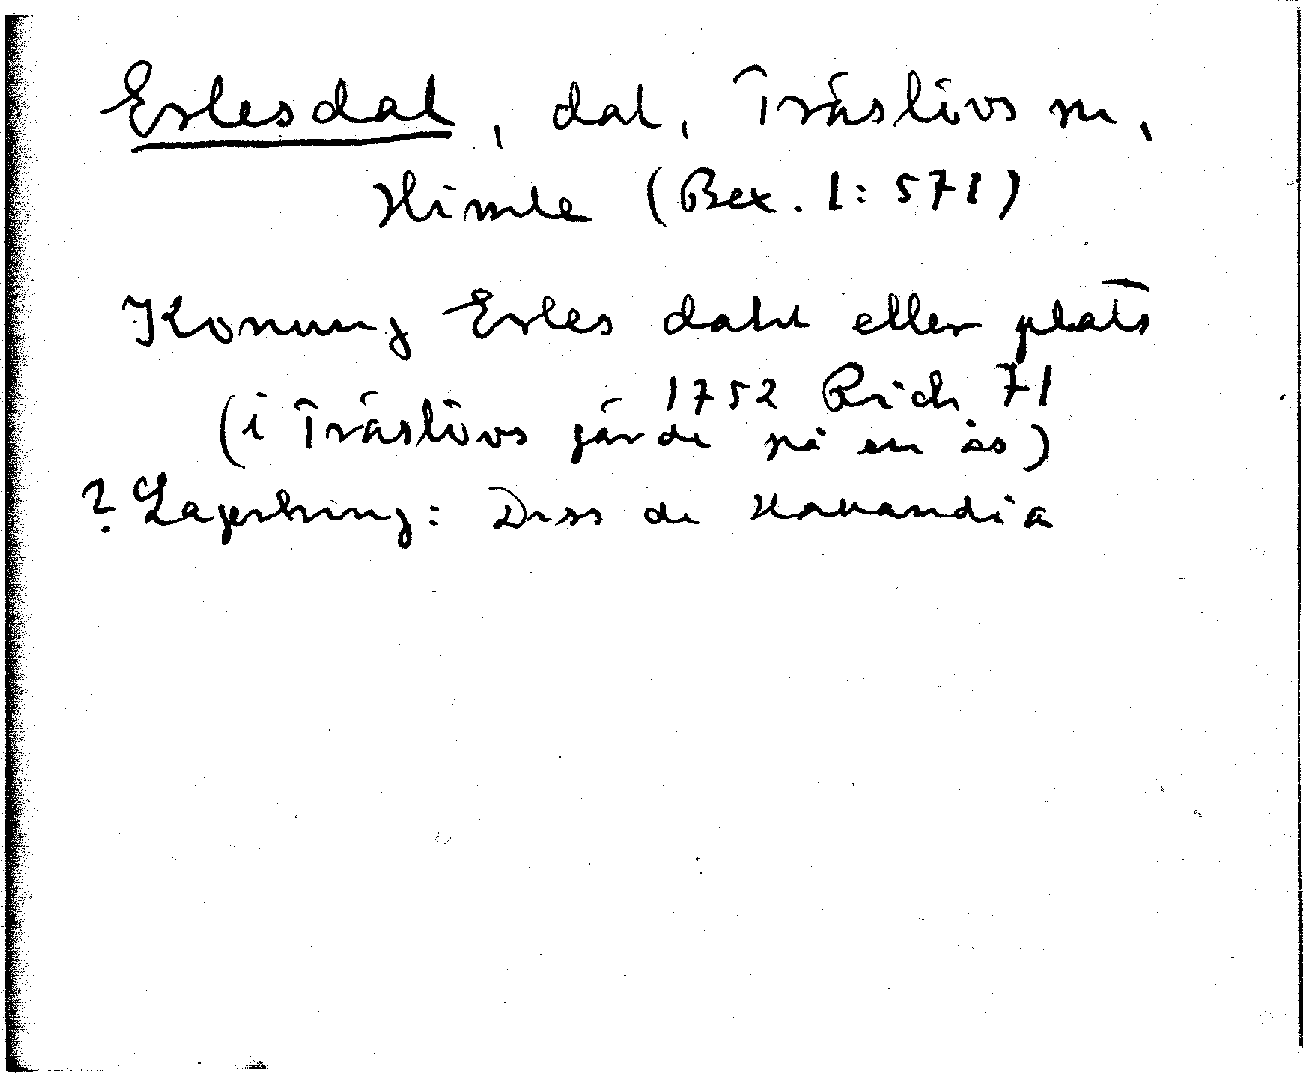 Erlesdal, dal, Träslövs sn,
Himle (Bex. 1:571)
Konung Erles dahl eller plats
1752 Rich 71
(i Träslövs gärde på en ås)
? Lagerbring: Diss de Hallandia